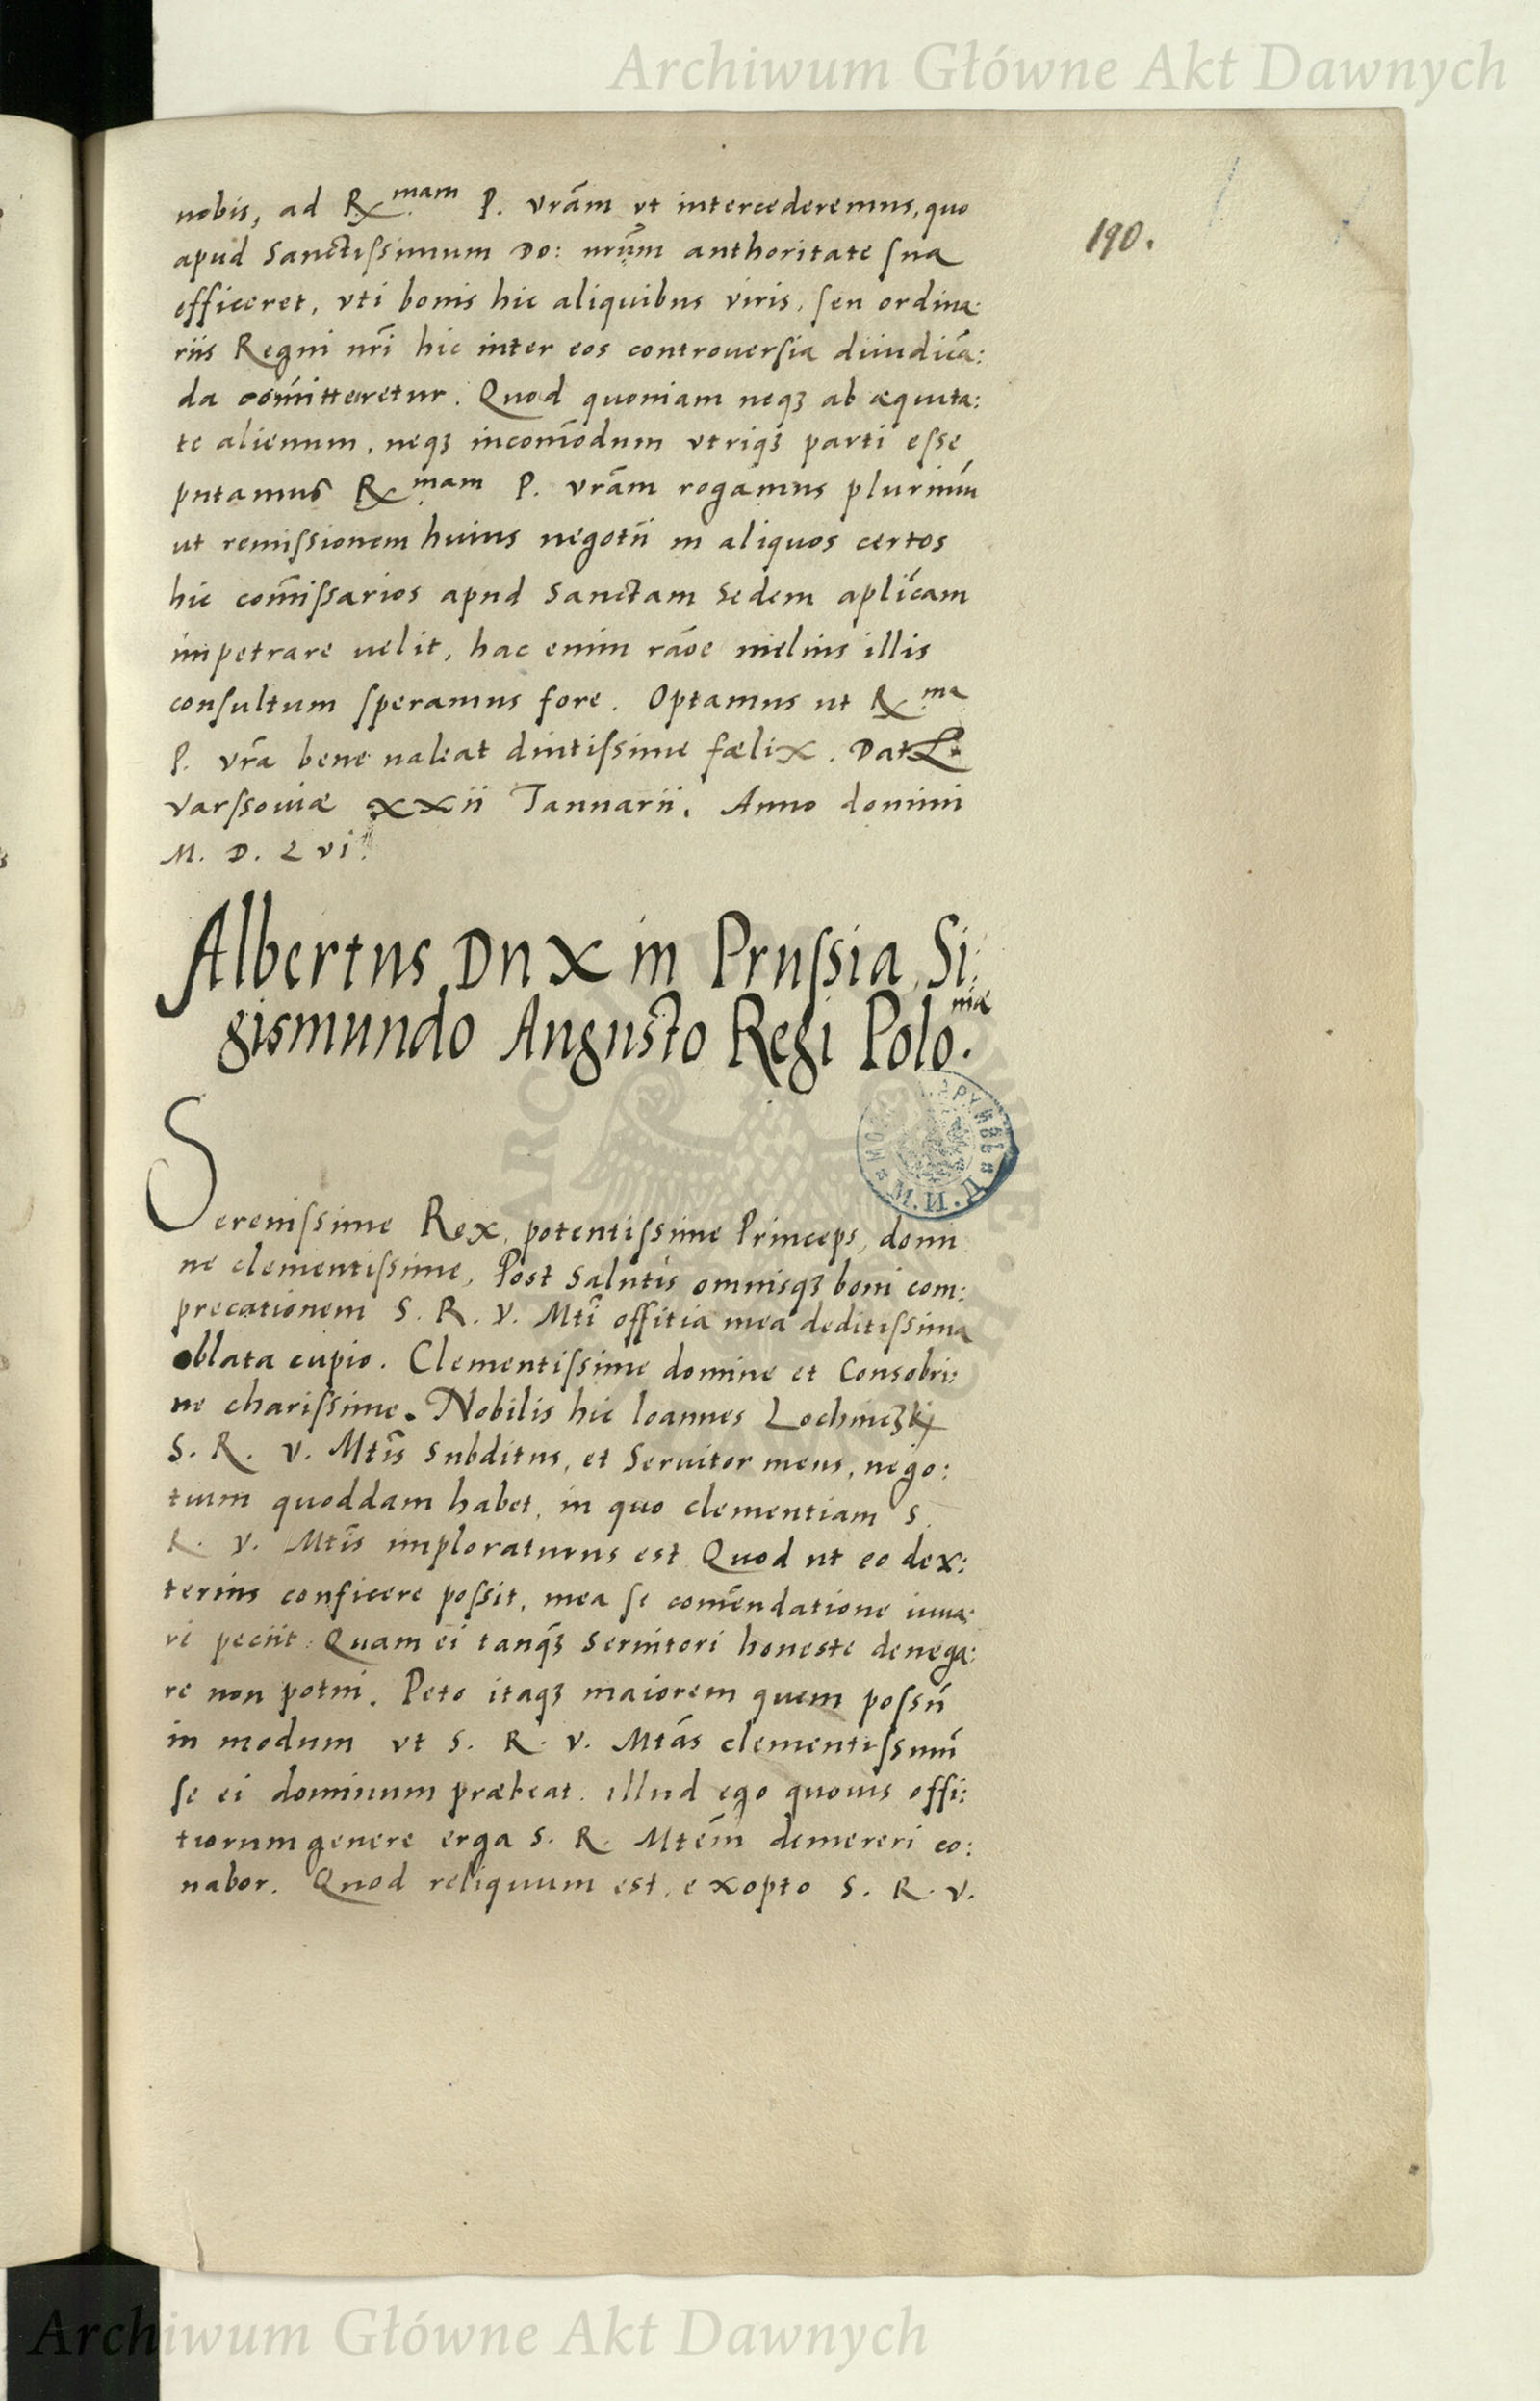 Archiwum Główne Akt Dawnych
190.
nobis, ad Rx mam P. vr̃am vt intercederemus, quo
apud Sanctissimum Do: nrũm authoritate sua
efficeret, vti bonis hic aliquibus viris, seu ordina:
riis Regni nr̃i hic inter eos controuersia diiudicã:
da com̃itteretur. Quod quoniam neqꝫ ab æquita:
te alienum, neqꝫ incom̃odum vtriqꝫ parti esse
putamus Rx mam P. vr̃am rogamus plurimũ
ut remissionem huius negotii in aliquos certos
hic com̃issarios apud Sanctam Sedem aplic̃am
impetrare uelit, hac enim rãoe melius illis
consultum speramus fore. Optamus ut Rx ma
P. vr̃a bene ualeat diutissime fælix. Dat
Varssouiæ xxii Ianuarii. Anno domini
M. D. L vi.
Albertus Dux in Prussia Si:
gismundo Augusto Regi Polo. niæ
Serenissime Rex, potentissime Princeps, domi
ne clementissime, Post Salutis omnisqꝫ boni com:
precationem S. R. V. Mtĩ offitia mea deditissima
oblata cupio. Clementissime domine et Consobri:
ne charissime. Nobilis hic Ioannes Lochinczkj
S. R. V. Mtĩs Subditus, et Seruitor meus, nego:
tium quoddam habet, in quo clementiam S.
R. V. Mtĩs imploraturus est Quod ut eo dex:
terius conficere possit, mea se com̃endatione iuua:
ri peciit. Quam ei tanq̃ꝫ Seruitori honeste denega:
re non potui. Peto itaqꝫ maiorem quem possũ
in modum vt S. R. V. Mtãs clementissimũ
se ei dominum præbeat. illud ego quouis offi:
tiorum genere erga S. R. Mtẽm demereri co:
nabor. Quod reliquum est, exopto S. R. V.
Archiwum Główne Akt Dawnych